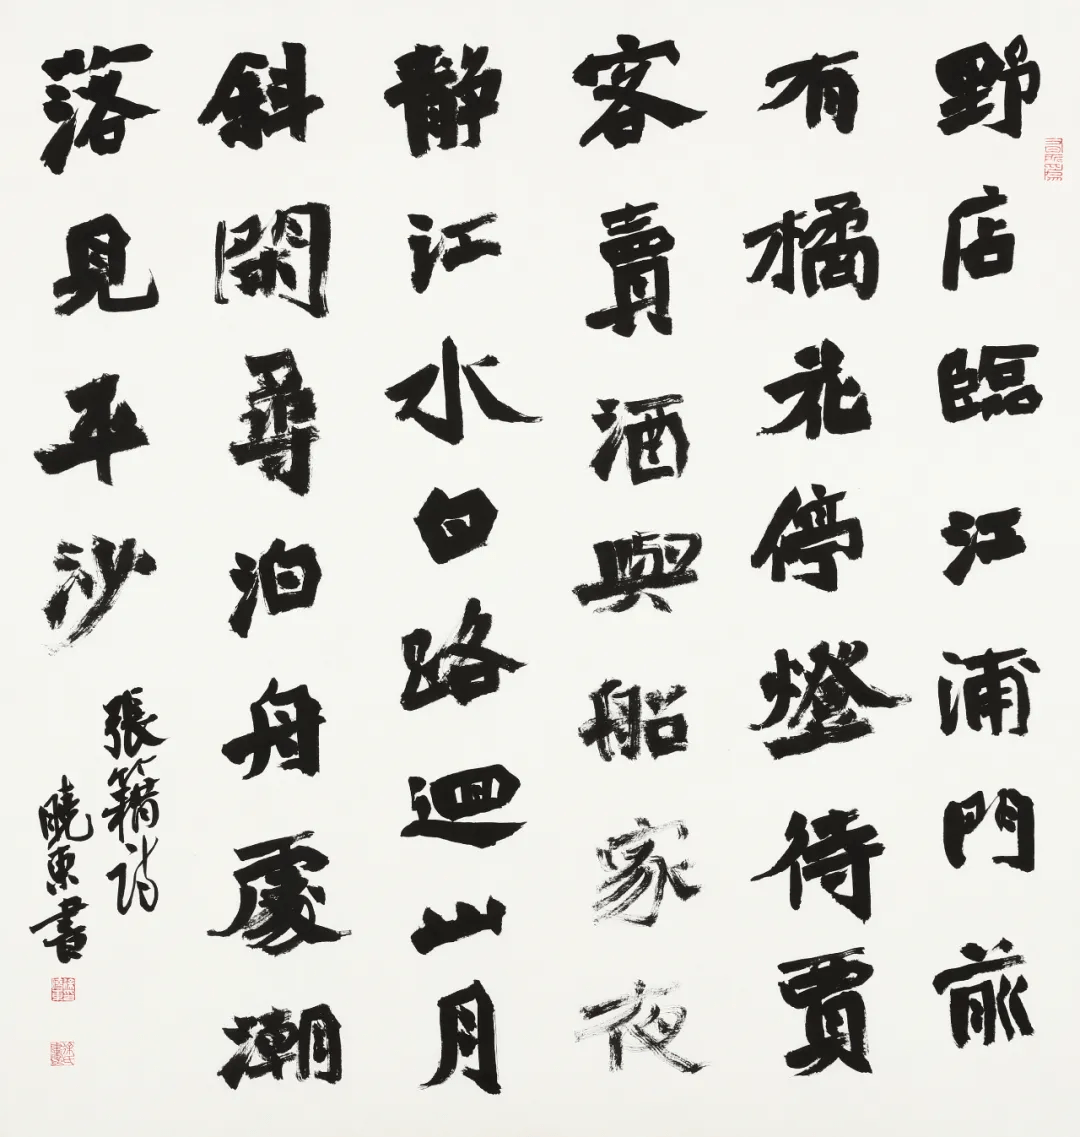 野店臨江浦門前
有橘花停燈待賈
客賣酒與船家夜
靜江水白路迴山月
斜閑尋泊舟處潮
落見平沙
張籍詩
曉東書